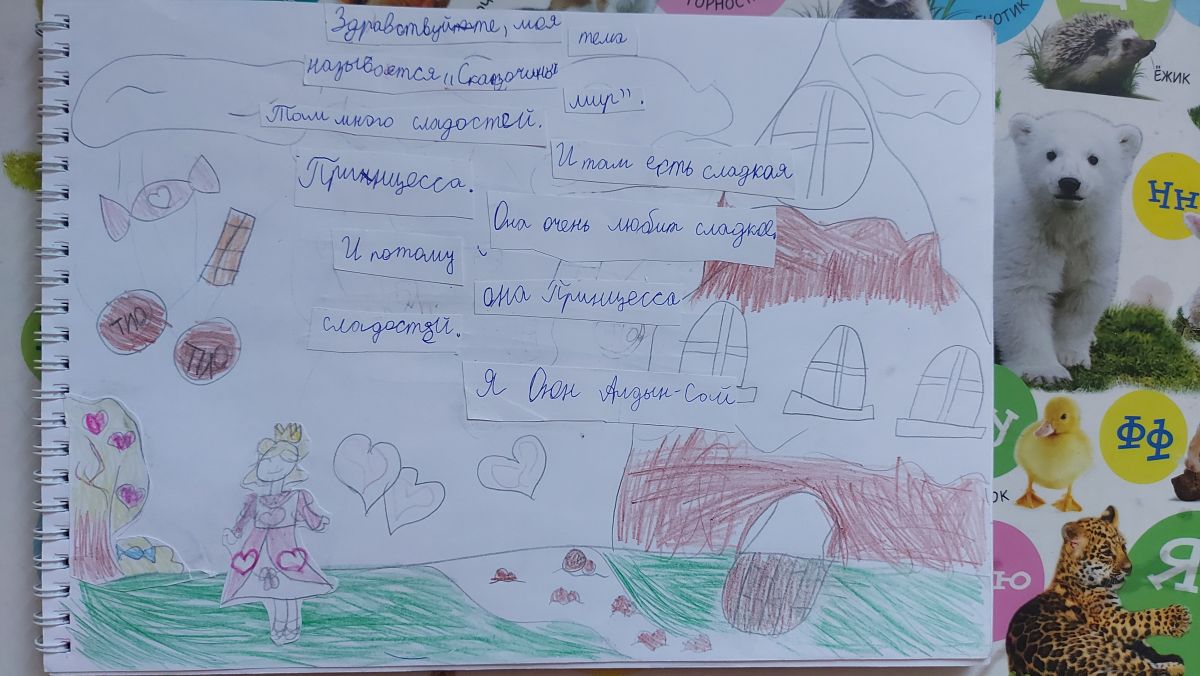 Здравствуйте, моя
тема
называется „Сказочный
мир".
Там много сладостей.
И там есть сладкая
Принцесса.
Она очень любит сладкое.
И потому
она Принцесса
сладостей.
Я Оюн Алдын-Сай
ТИО
ТИО
ЕНОТИК
ЁЖИК
Нн
Фф
Я
Ю